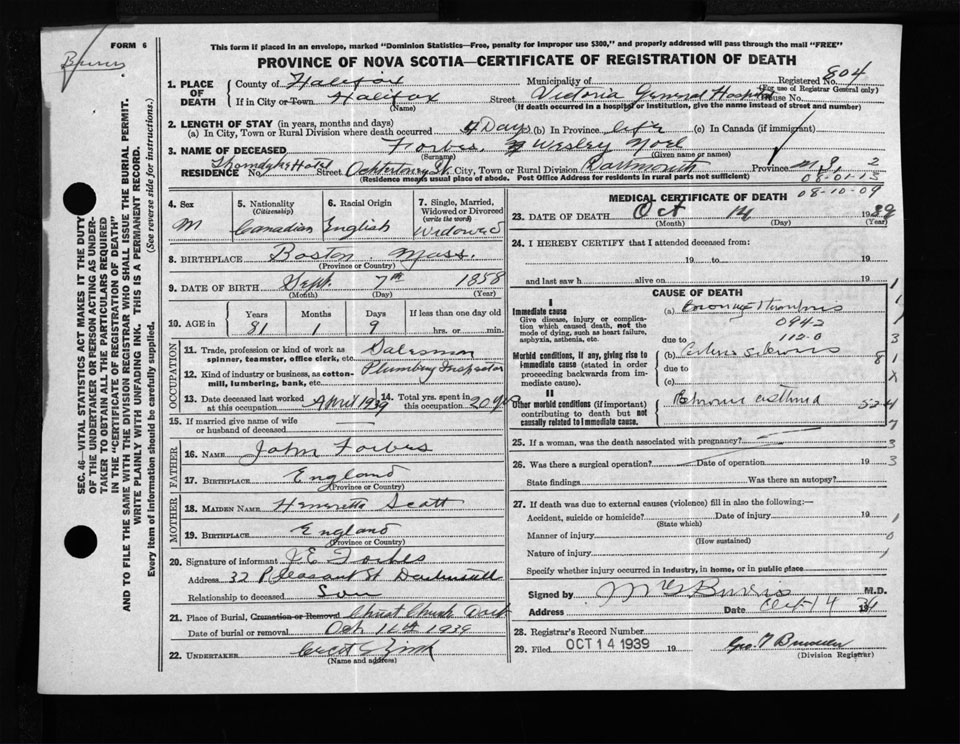 FORM 6
This form if placed in an envelope, marked "Dominion Statistics—Free, penalty for improper use $300," and properly addressed will pass through the mail "FREE"
PROVINCE OF NOVA SCOTIA—CERTIFICATE OF REGISTRATION OF DEATH
Registered No. 804
(For use of Registrar General only)
1. PLACE OF DEATH County of Halifax Municipality of
If in City or Town Halifax Street Victoria General Hospital House No.
(Name) (If death occurred in a hospital or institution, give the name instead of street and number)
2. LENGTH OF STAY (in years, months and days)
(a) In City, Town or Rural Division where death occurred 4 Days (b) In Province life (c) In Canada (if immigrant)
3. NAME OF DECEASED Forbes, Wesley Noel
(Surname) (Given name or names)
RESIDENCE No. Thorndyke Hotel Street City, Town or Rural Division Dartmouth Province N.S. 2
(Residence means usual place of abode. Post Office Address for residents in rural parts not sufficient)
08-01-15
08-10-09
4. Sex M
5. Nationality (Citizenship) Canadian
6. Racial Origin English
7. Single, Married, Widowed or Divorced (write the word) Widowed
8. BIRTHPLACE Boston Mass.
(Province or Country)
9. DATE OF BIRTH Sept. 7th 1858
(Month) (Day) (Year)
10. AGE in Years Months Days If less than one day
81 1 9 hrs. or min.
OCCUPATION
11. Trade, profession or kind of work as spinner, teamster, office clerk, etc. Salesman
12. Kind of industry or business, as cotton-mill, lumbering, bank, etc. Plumbing Inspector
13. Date deceased last worked at this occupation April 1939
14. Total yrs. spent in this occupation 20 yrs
15. If married give name of wife or husband of deceased
FATHER
16. NAME John Forbes
17. BIRTHPLACE England
(Province or Country)
MOTHER
18. MAIDEN NAME Henrietta Scott
19. BIRTHPLACE England
(Province or Country)
20. Signature of informant J.E. Forbes
Address 32 Pleasant St Dartmouth
Relationship to deceased Son
21. Place of Burial, Cremation or Removal Christ Church Dart
Date of burial or removal Oct 16th 1939
22. UNDERTAKER Zink
(Name and address)
MEDICAL CERTIFICATE OF DEATH
23. DATE OF DEATH Oct 14 1939
(Month) (Day) (Year)
24. I HEREBY CERTIFY that I attended deceased from:
19 to 19
and last saw h alive on 19
CAUSE OF DEATH
I
Immediate cause
Give disease, injury or complication which caused death, not the mode of dying, such as heart failure, asphyxia, asthenia, etc.
(a) Coronary Thrombosis
094 2
112.0
due to
Morbid conditions, if any, giving rise to immediate cause (stated in order proceeding backwards from immediate cause).
(b)
due to
(c)
II
Other morbid conditions (if important) contributing to death but not causally related to immediate cause.
Chronic asthma
25. If a woman, was the death associated with pregnancy?
26. Was there a surgical operation? Date of operation 19
State findings Was there an autopsy?
27. If death was due to external causes (violence) fill in also the following:—
Accident, suicide or homicide? Date of injury 19
(State which)
Manner of injury
(How sustained)
Nature of injury
Specify whether injury occurred in industry, in home, or in public place
Signed by M.D.
Address Date Oct 14
28. Registrar's Record Number
29. Filed OCT 14 1939 19
(Division Registrar)
SEC. 46—VITAL STATISTICS ACT MAKES IT THE DUTY
OF THE UNDERTAKER OR PERSON ACTING AS UNDERTAKER TO OBTAIN ALL THE PARTICULARS REQUIRED
IN THE "CERTIFICATE OF REGISTRATION OF DEATH"
AND TO FILE THE SAME WITH THE DIVISION REGISTRAR WHO SHALL ISSUE THE BURIAL PERMIT.
WRITE PLAINLY WITH UNFADING INK. THIS IS A PERMANENT RECORD.
Every item of information should be carefully supplied. (See reverse side for instructions.)